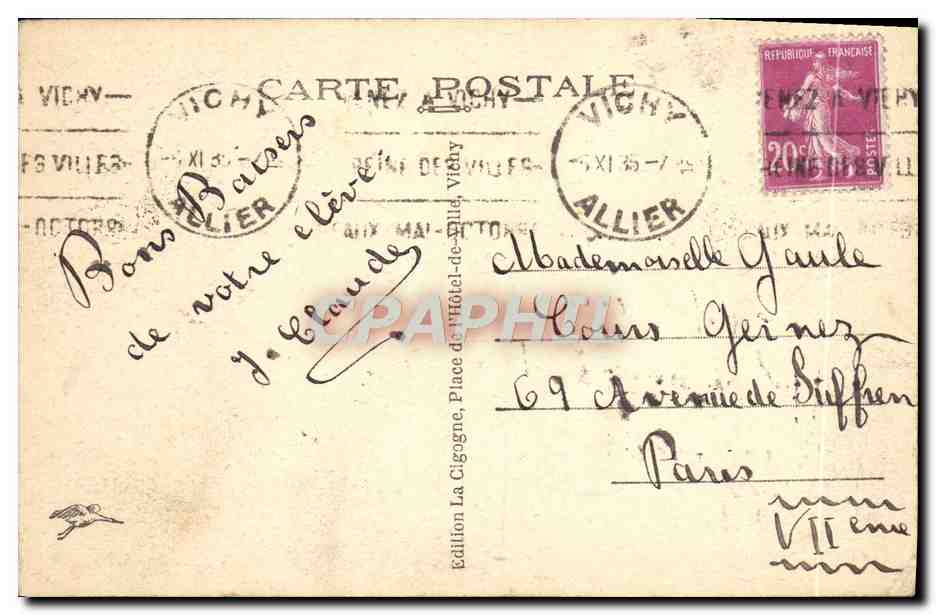 CARTE POSTALE
REPUBLIQUE FRANÇAISE
20c
POSTES
VICHY
ALLIER
VICHY
-6 XI 35 -7
ALLIER
A VICHY-
VENEZ A VICHY-
VENEZ A VICHY
ES VILLES-
REINE DES VILLES-
REINE DES VILL
-OCTOBRE
EAUX MAI-OCTOBRE
EAUX MAI
Bons Baisers
de votre élève
J. Claude
Edition La Cigogne, Place de l'Hôtel-de-Ville, Vichy
CPAPHIL
Mademoiselle Gaule
Cours Geinez
69 Avenue de Suffren
Paris
VIIeme